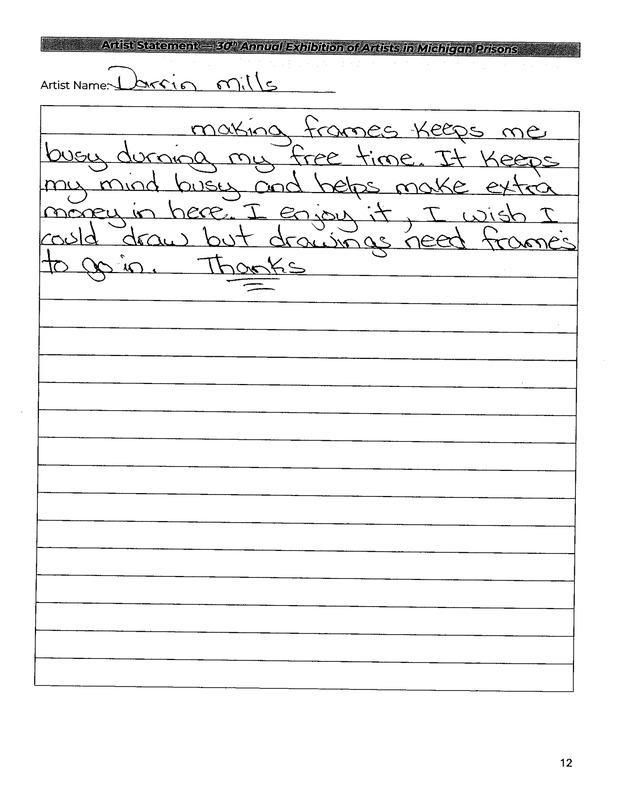 Artist Statement — 30th Annual Exhibition of Artists in Michigan Prisons
Artist Name: Darrin mills
making frames keeps me
busy durning my free time. It keeps
my mind busy and helps make extra
money in here. I enjoy it, I wish I
could draw but drawings need frames
to go in. Thanks
12